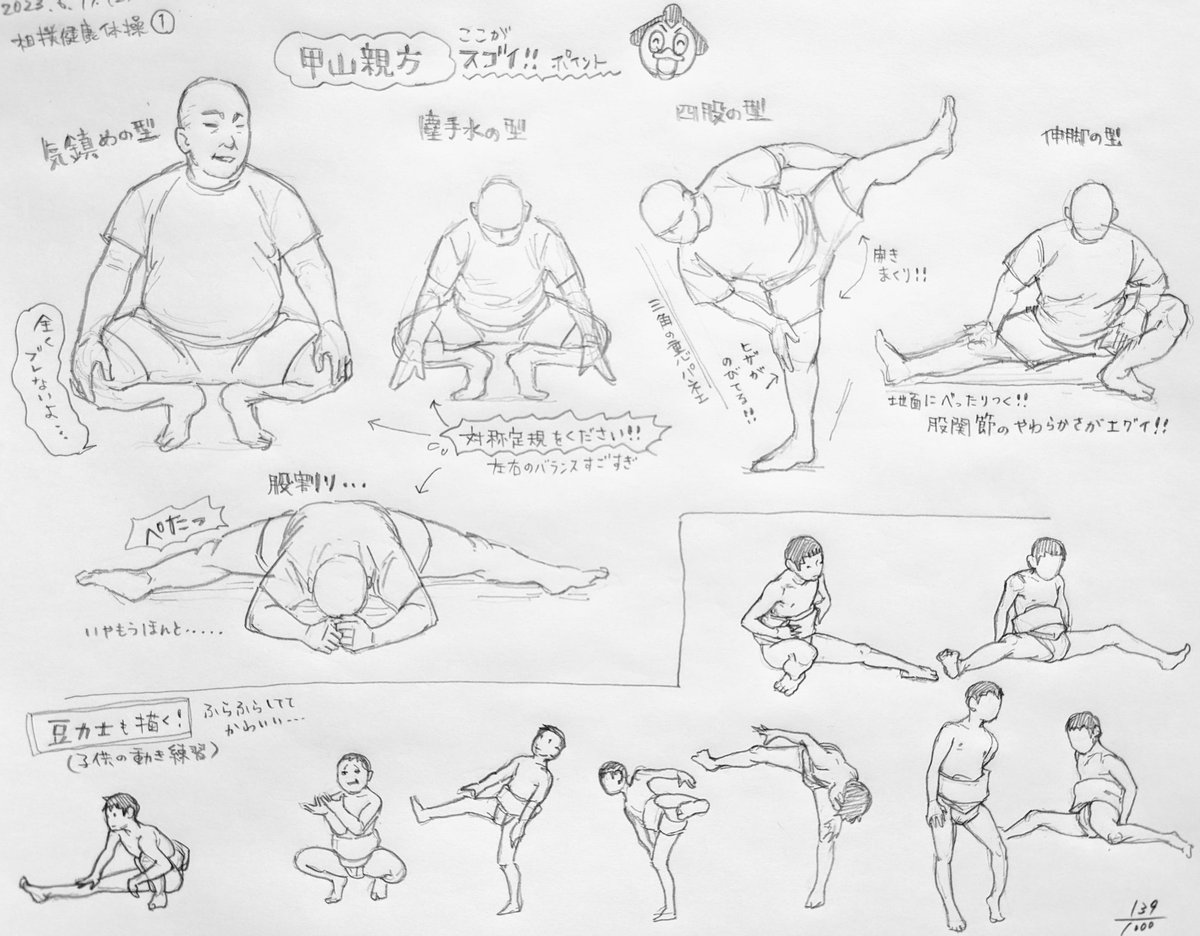 2023.6.17.
相撲健康体操①
甲山親方
ここが
スゴイ!! ポイント
気鎮めの型
塵手水の型
四股の型
伸脚の型
全く
ブレないよ…
開き
まくり!!
三角の
ヒザが
のびてる!!
地面にべったりつく!!
股関節のやわらかさがエグイ!!
対称定規をください!!
左右のバランスすごすぎ
股割り…
ペたっ
いやもうほんと.....
豆力士も描く!
(子供の動き練習)
ふらふらしてて
かわいい…
139
1000